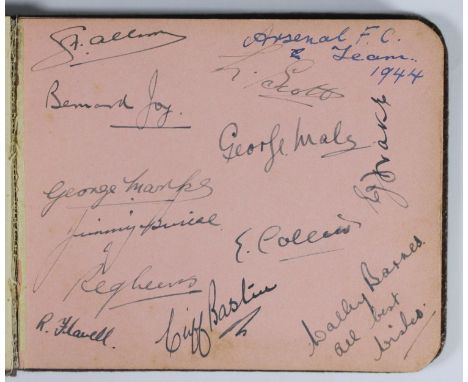 G. Allison
Arsenal F.C.
Team.
1944
L. Scott
Bernard Joy.
George Male
E. J. Drake
George Marks
Jimmy
E. Collett
Reg Lewis
Cliff Bastin
R. Flavell.
Walley Barnes.
all best
wishes.